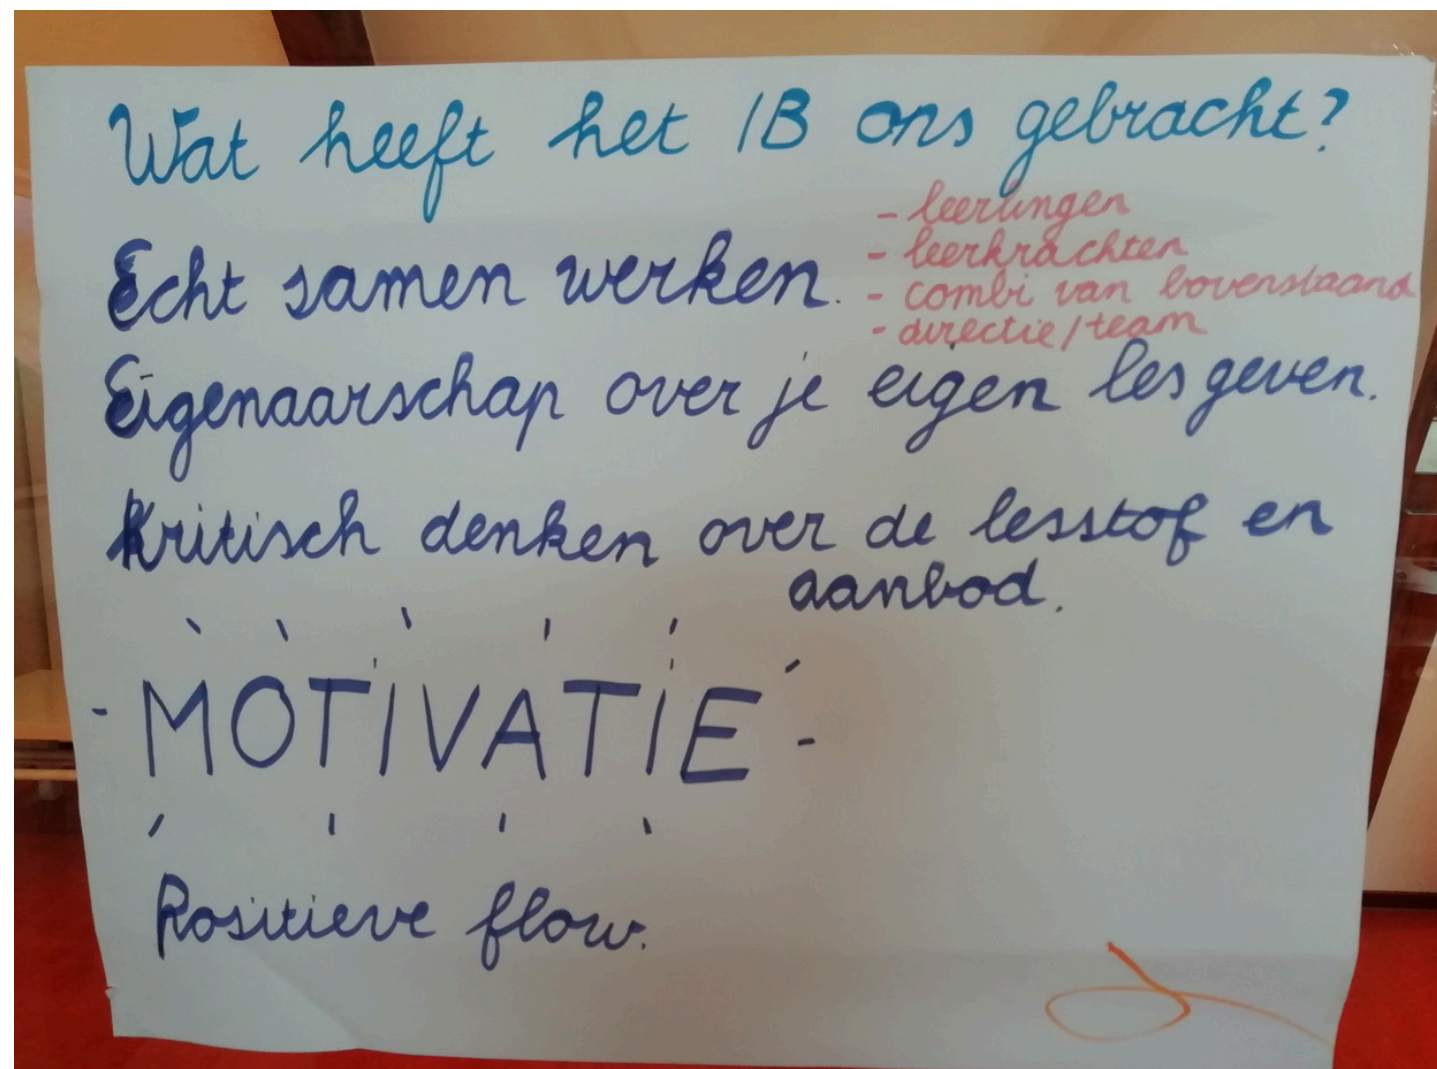 Wat heeft het IB ons gebracht?
- leerlingen
- leerkrachten
Echt samen werken.
- combi van bovenstaand
- directie/team
Eigenaarschap over je eigen lesgeven.
Kritisch denken over de lesstof en
aanbod.
- MOTIVATIE -
Positieve flow.